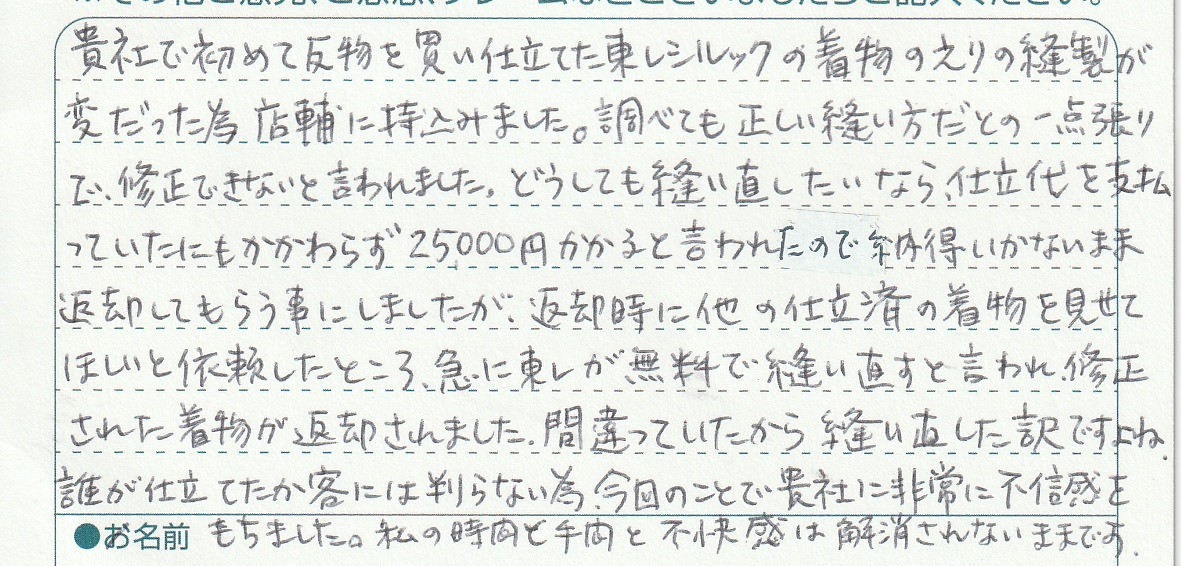 貴社で初めて反物を買い仕立てた東レシルックの着物のえりの縫製が
変だった為店輔に持込みました。調べても正しい縫い方だとの一点張り
で、修正できないと言われました。どうしても縫い直したいなら、仕立代を支払
っていたにもかかわらず25,000円かかると言われたので納得いかないまま
返却してもらう事にしましたが、返却時に他の仕立済の着物を見せて
ほしいと依頼したところ、急に東レが無料で縫い直すと言われ、修正
された着物が返却されました。間違っていたから縫い直した訳ですよね。
誰が仕立てたか客には判らない為、今回のことで貴社に非常に不信感を
●お名前 もちました。私の時間と手間と不快感は解消されないままです。